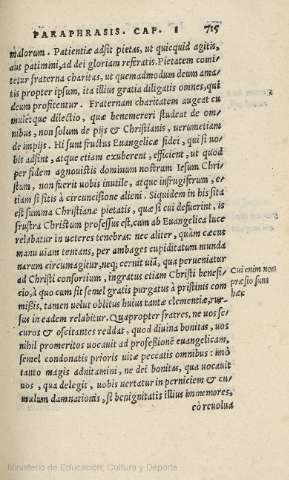 PARAPHRASIS. CAP. I 715
malorum. Patientiæ adsit pietas, ut quicquid agitis,
aut patimini, ad dei gloriam referatis. Pietatem comi-
tetur fraterna charitas, ut quemadmodum deum ama-
tis propter ipsum, ita illius gratia diligatis omnes, qui
deum profitentur. Fraternam charitatem augeat cu
muletque dilectio, quæ benemereri studeat de om
nibus, non solum de pijs & Christianis, uerumetiam
de impijs. Hi sunt fructus Euangelicæ fidei, qui si uo-
bis adsint, atque etiam exuberent, efficient, ut quod
per fidem agnouistis dominum nostrum Iesum Chri-
stum, non fuerit uobis inutile, atque infrugiferum, e-
tiam si sitis à circuncisione alieni. Siquidem in his sita
est summa Christianæ pietatis, quæ si cui defuerint, is
frustra Christum professus est, cum ab Euangelica luce
relabatur in ueteres tenebras: nec aliter, quàm cæcus
manu uiam tentans, per ambages cupiditatum munda
narum circumagitur, neque cernit uiã, qua perueniatur
ad Christi consortium, ingratus etiam Christi benefi-
cio, à quo cum sit semel gratis purgatus à pristinis com
missis, tamen uelut oblitus huius tantæ clementiæ, rur-
sus in eadem relabitur. Quapropter fratres, ne uos se-
curos & oscitantes reddat, quod diuina bonitas, uos
nihil promeritos uocauit ad professionẽ euangelicam,
semel condonatis prioris uitæ peccatis omnibus: imò
tanto magis adnitamini, ne dei bonitas, quæ uocauit
uos, quæ delegit, uobis uertatur in perniciem & cu-
mulum damnationis, si benignitatis illius immemores,
cõ reuolua
Cui enim non
præsto sunt
hæc.
Ministerio de Educación, Cultura y Deporte